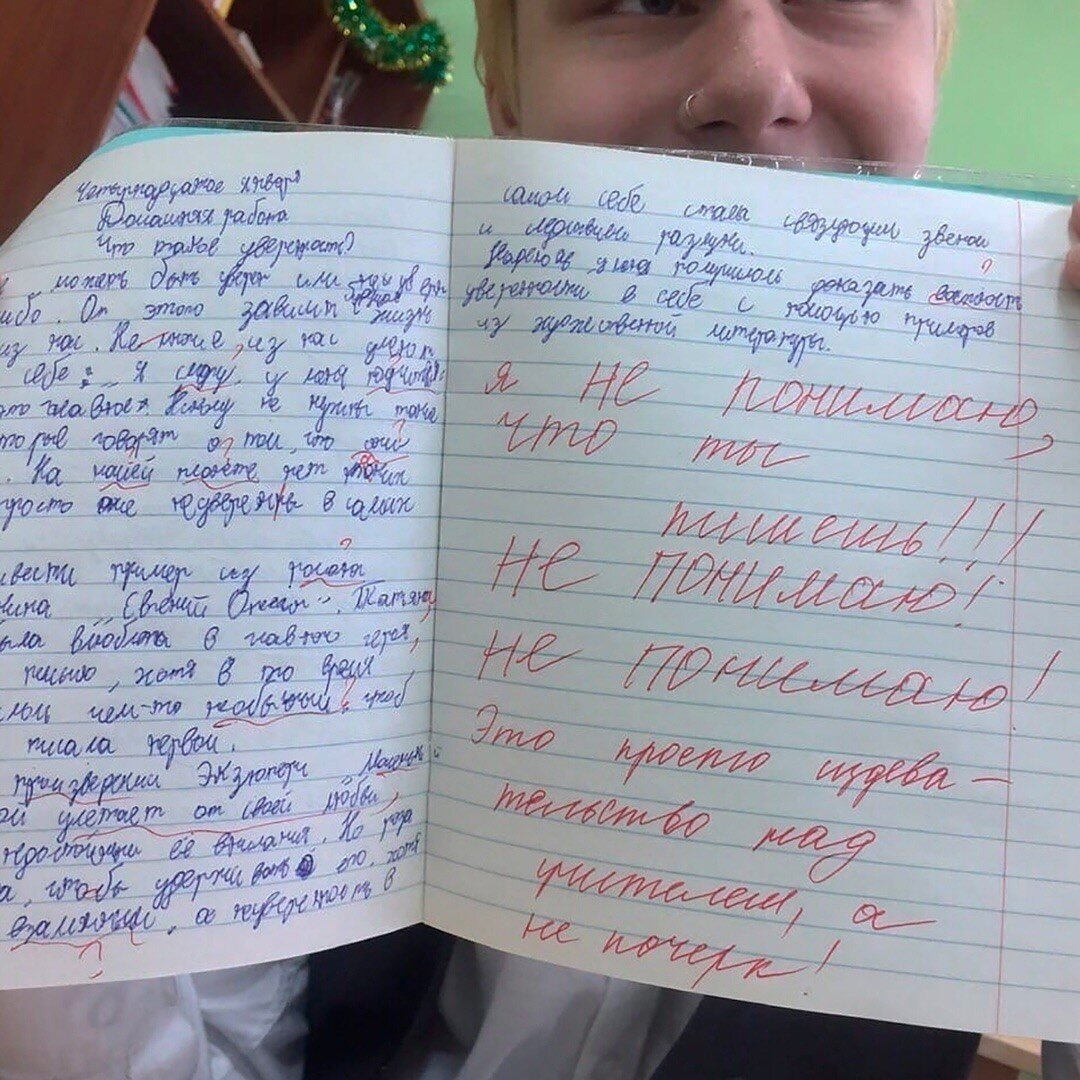 Четырнадцатое января
Домашняя работа
Что такое уверенность?
может быть уверен или
либо. От этого зависит жизнь
из нас. Не многие из нас умеют
себе: „Я
это главное. Никому не нужны
говорят о том, что они
. На нашей планете нет таких
просто они не уверены в самих
пример из
„Евгений Онегин". Татьяна
была влюблена в главного героя,
письмо, хотя в то время
чем-то необычным, чтоб
писала первой.
произведении Экзюпери „Маленький
улетает от своей любви,
её внимания. Но роза
, чтобы удерживать его, хотя
взаимный, а неуверенность в
самом себе стала связующим звеном
и разлуки.
Надеюсь, у меня получилось доказать
уверенности в себе с помощью примеров
из художественной литературы.
я не понимаю,
что ты
пишешь!!!
Не понимаю!
Не понимаю!
Это просто издева-
тельство над
учителем, а
не почерк!